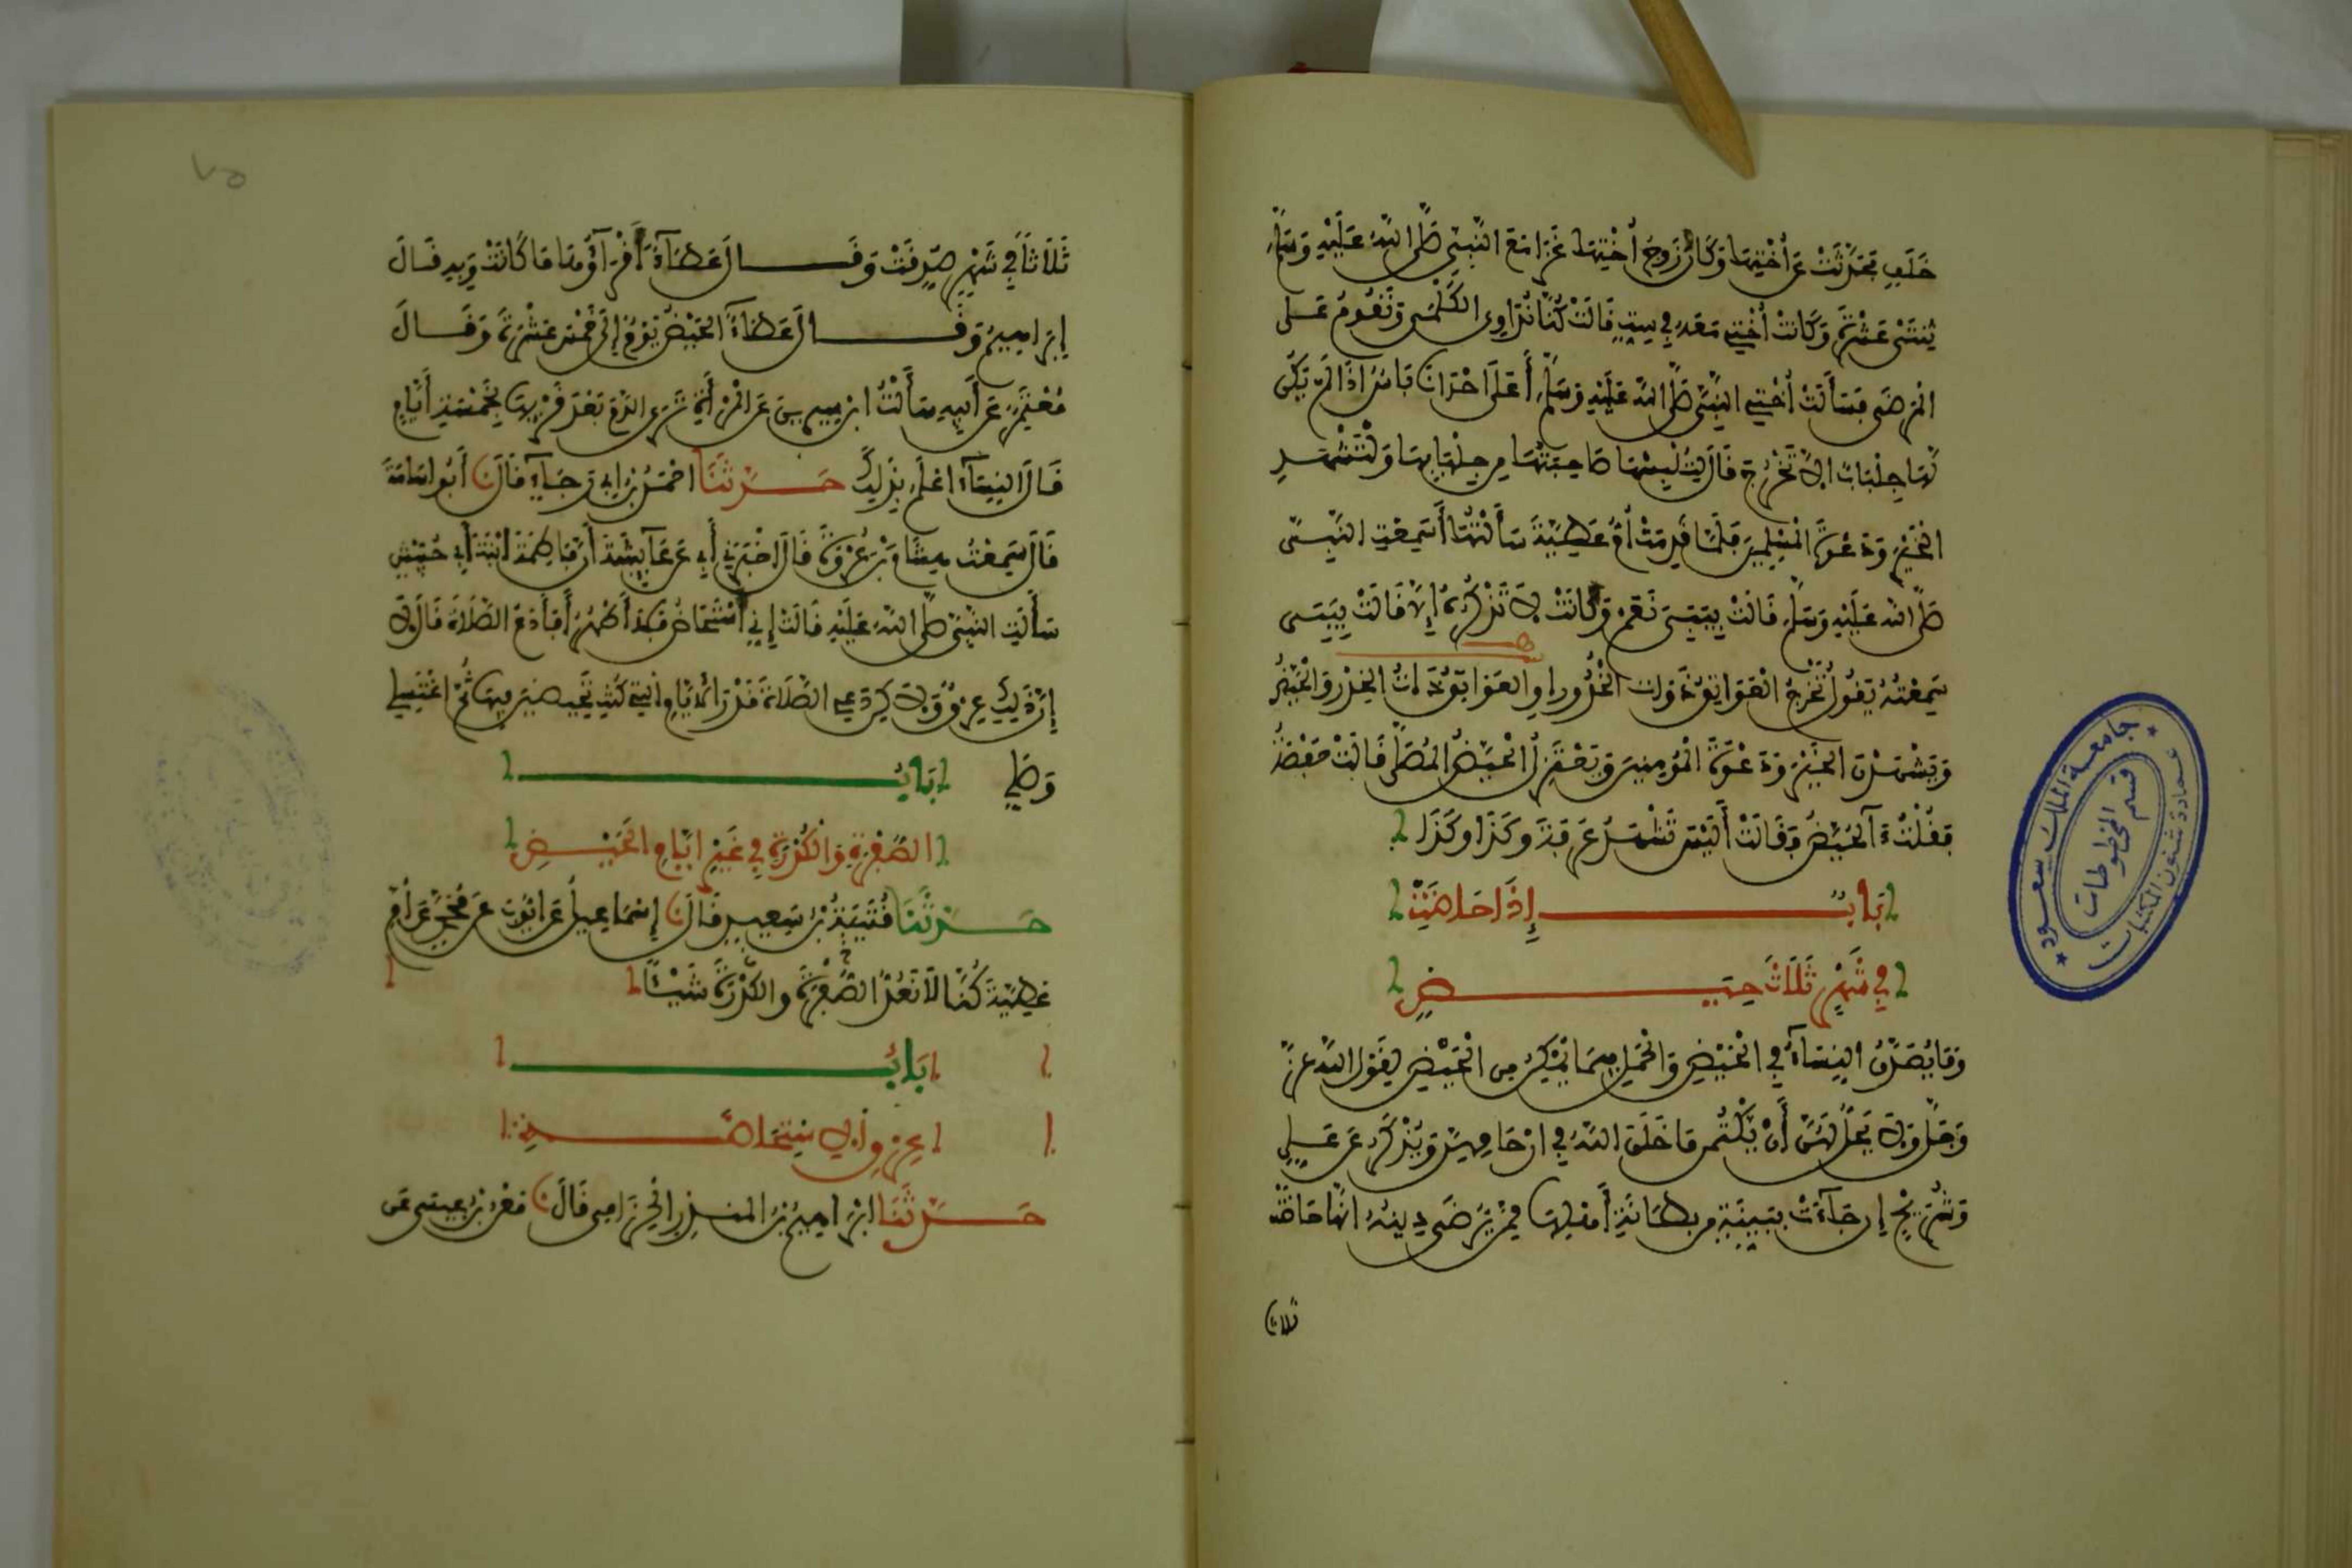 خَلَفٍ فَحَدَّثَتْ عَنْ أُخْتِهَا وَكَانَ زَوْجُ أُخْتِهَا غَزَا مَعَ النَّبِيِّ صَلَّى اللهُ عَلَيْهِ وَسَلَّمَ
ثِنْتَيْ عَشْرَةَ وَكَانَتْ أُخْتِي مَعَهُ فِي سِتٍّ قَالَتْ كُنَّا نُدَاوِي الكَلْمَى وَنَقُومُ عَلَى
الْمَرْضَى فَسَأَلَتْ أُخْتِي النَّبِيَّ صَلَّى اللهُ عَلَيْهِ وَسَلَّمَ أَعَلَى إِحْدَانَا بَأْسٌ إِذَا لَمْ يَكُنْ
لَهَا جِلْبَابٌ أَلاَّ تَخْرُجَ قَالَ لِتُلْبِسْهَا صَاحِبَتُهَا مِنْ جِلْبَابِهَا وَلْتَشْهَدِ
الْخَيْرَ وَدَعْوَةَ الْمُسْلِمِينَ فَلَمَّا قَدِمَتْ أُمُّ عَطِيَّةَ سَأَلْتُهَا أَسَمِعْتِ النَّبِيَّ
صَلَّى اللهُ عَلَيْهِ وَسَلَّمَ قَالَتْ بِيَبِي نَعَمْ وَكَانَتْ لاَ تَذْكُرُهُ إِلاَّ قَالَتْ بِيَبِي
سَمِعْتُهُ يَقُولُ تَخْرُجُ الْعَوَاتِقُ وَذَوَاتُ الْخُدُورِ أَوِ العَوَاتِقُ ذَوَاتُ الْخُدُورِ وَالْحُيَّضُ
وَيَشْهَدْنَ الْخَيْرَ وَدَعْوَةَ الْمُؤْمِنِينَ وَيَعْتَزِلُ الْحُيَّضُ الْمُصَلَّى قَالَتْ حَفْصَةُ
فَقُلْتُ آلْحُيَّضُ فَقَالَتْ أَلَيْسَ تَشْهَدُ عَرَفَةَ وَكَذَا وَكَذَا
بَابٌ إِذَا حَاضَتْ
فِي شَهْرٍ ثَلَاثَ حِيَضٍ
وَمَا يُصَدَّقُ النِّسَآءُ فِي الْحَيْضِ وَالْحَمْلِ فِيمَا يُمْكِنُ مِنَ الْحَيْضِ لِقَوْلِ اللهِ عَزَّ
وَجَلَّ وَلاَ يَحِلُّ لَهُنَّ أَنْ يَكْتُمْنَ مَا خَلَقَ اللهُ فِي أَرْحَامِهِنَّ وَيُذْكَرُ عَنْ عَلِيٍّ
وَشُرَيْحٍ إِنْ جَآءَتْ بِبَيِّنَةٍ مِنْ بِطَانَةِ أَهْلِهَا مِمَّنْ يُرْضَى دِينُهُ أَنَّهَا حَاضَتْ
ثلاثا
٧٥
ثَلَاثًا فِي شَهْرٍ صُدِّقَتْ وَقَالَ عَطَآءٌ أَقْرَآؤُهَا مَا كَانَتْ وَبِهِ قَالَ
إِبْرَاهِيمُ وَقَالَ عَطَآءٌ الْحَيْضُ يَوْمٌ إِلَى خَمْسَ عَشْرَةَ وَقَالَ
مُعْتَمِرٌ عَنْ أَبِيهِ سَأَلْتُ ابْنَ سِيرِينَ عَنِ الْمَرْأَةِ تَرَى الدَّمَ بَعْدَ قُرْئِهَا بِخَمْسَةِ أَيَّامٍ
قَالَ النِّسَآءُ أَعْلَمُ بِذَلِكَ حَدَّثَنَا أَحْمَدُ بْنُ أَبِي رَجَآءٍ قَالَ نَا أَبُو أُسَامَةَ
قَالَ سَمِعْتُ هِشَامَ بْنَ عُرْوَةَ قَالَ أَخْبَرَنِي أَبِي عَنْ عَآئِشَةَ أَنَّ فَاطِمَةَ ابْنَةَ أَبِي حُبَيْشٍ
سَأَلَتِ النَّبِيَّ صَلَّى اللهُ عَلَيْهِ قَالَتْ إِنِّي أُسْتَحَاضُ فَلاَ أَطْهُرُ أَفَأَدَعُ الصَّلاَةَ قَالَ لاَ
إِنَّ ذَلِكِ عِرْقٌ وَلَكِنْ دَعِي الصَّلاَةَ قَدْرَ الأَيَّامِ الَّتِي كُنْتِ تَحِيضِينَ فِيهَا ثُمَّ اغْتَسِلِي
وَصَلِّي بَابُ
الصُّفْرَةِ وَالْكُدْرَةِ فِي غَيْرِ أَيَّامِ الْحَيْضِ
حَدَّثَنَا قُتَيْبَةُ بْنُ سَعِيدٍ قَالَ نَا إِسْمَاعِيلُ عَنْ أَيُّوبَ عَنْ مُحَمَّدٍ عَنْ أُمِّ
عَطِيَّةَ كُنَّا لاَ نَعُدُّ الصُّفْرَةَ وَالكُدْرَةَ شَيْئًا
بَابُ
عِرْقِ الاسْتِحَاضَةِ
حَدَّثَنَا إِبْرَاهِيمُ بْنُ الْمُنْذِرِ الْحِزَامِي قَالَ نَا مَعْنُ بْنُ عِيسَى عَنِ
جامعة الملك سعود
عمادة شئون المكتبات
قسم المخطوطات